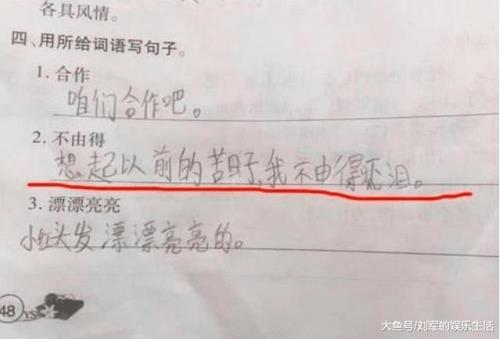 各具风情。
四、用所给词语写句子。
1. 合作
咱们合作吧。
2. 不由得
想起以前的苦日子,我不由得流泪。
3. 漂漂亮亮
小红头发漂漂亮亮的。
48 YS
大鱼号/刘军的娱乐生活